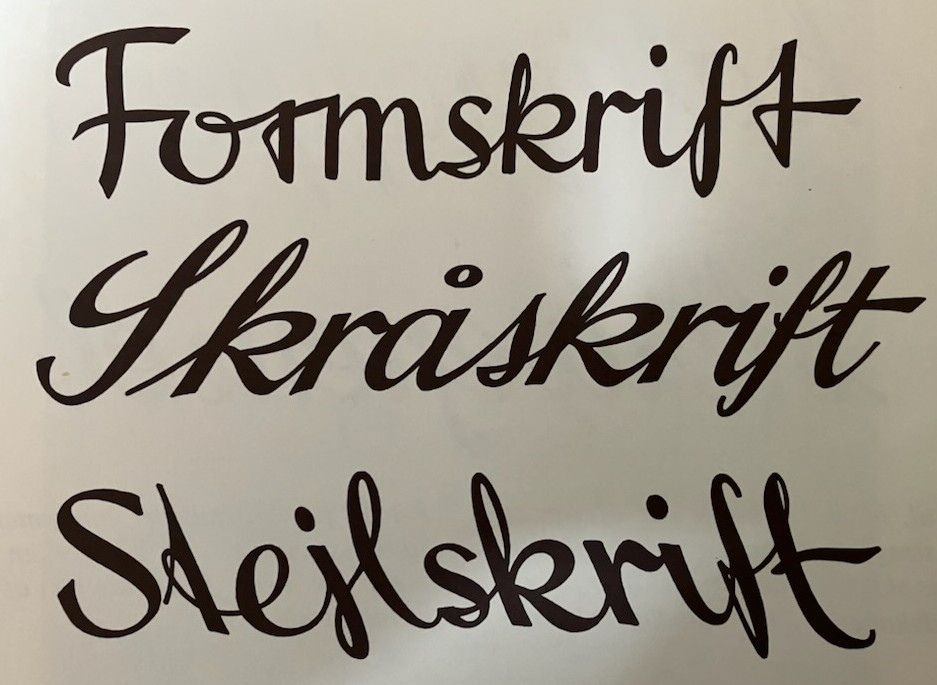 Formskrift
Skråskrift
Stejlskrift